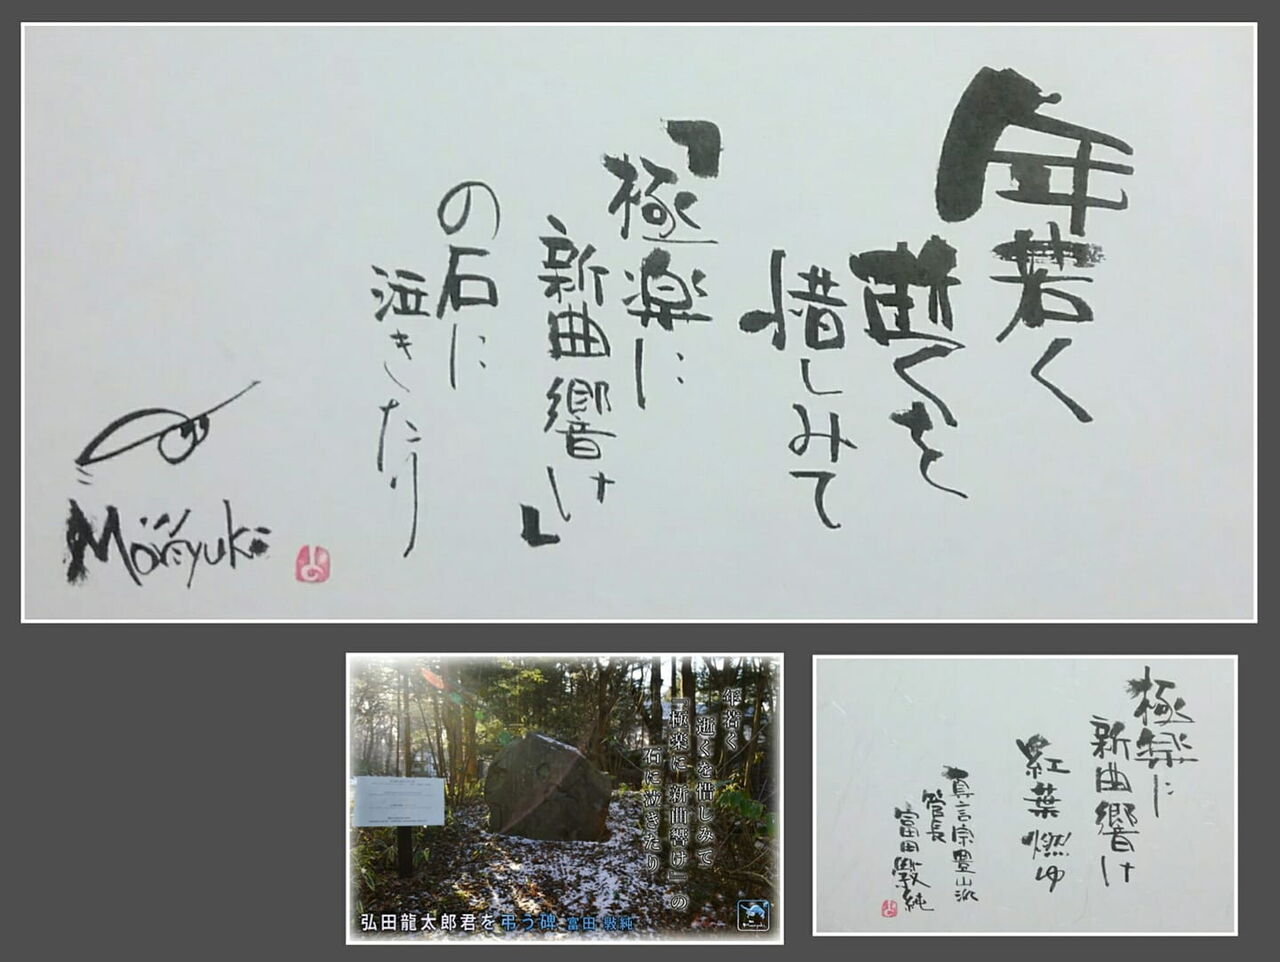 年若く
逝くを
惜しみて
「極楽に
新曲響け」
の石に
泣きたり
Moriyuki
年若く
逝くを惜しみて
『極楽に 新曲響け』の
石に泣きたり
弘田龍太郎君を 弔う碑 富田 敦純
極楽に
新曲響け
紅葉燃ゆ
真言宗豊山派
管長
富田敦純